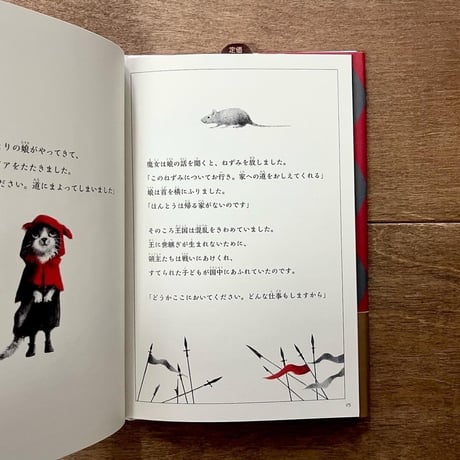 定価
りの娘がやってきて、
アをたたきました。
ださい。道にまよってしまいました」
魔女は娘の話を聞くと、ねずみを放しました。
「このねずみについてお行き。家への道をおしえてくれる」
娘は首を横にふりました。
「ほんとうは帰る家がないのです」
そのころ王国は混乱をきわめていました。
王に世継ぎが生まれないために、
領主たちは戦いにあけくれ、
すてられた子どもが国中にあふれていたのです。
「どうかここにおいてください。どんな仕事もしますから」